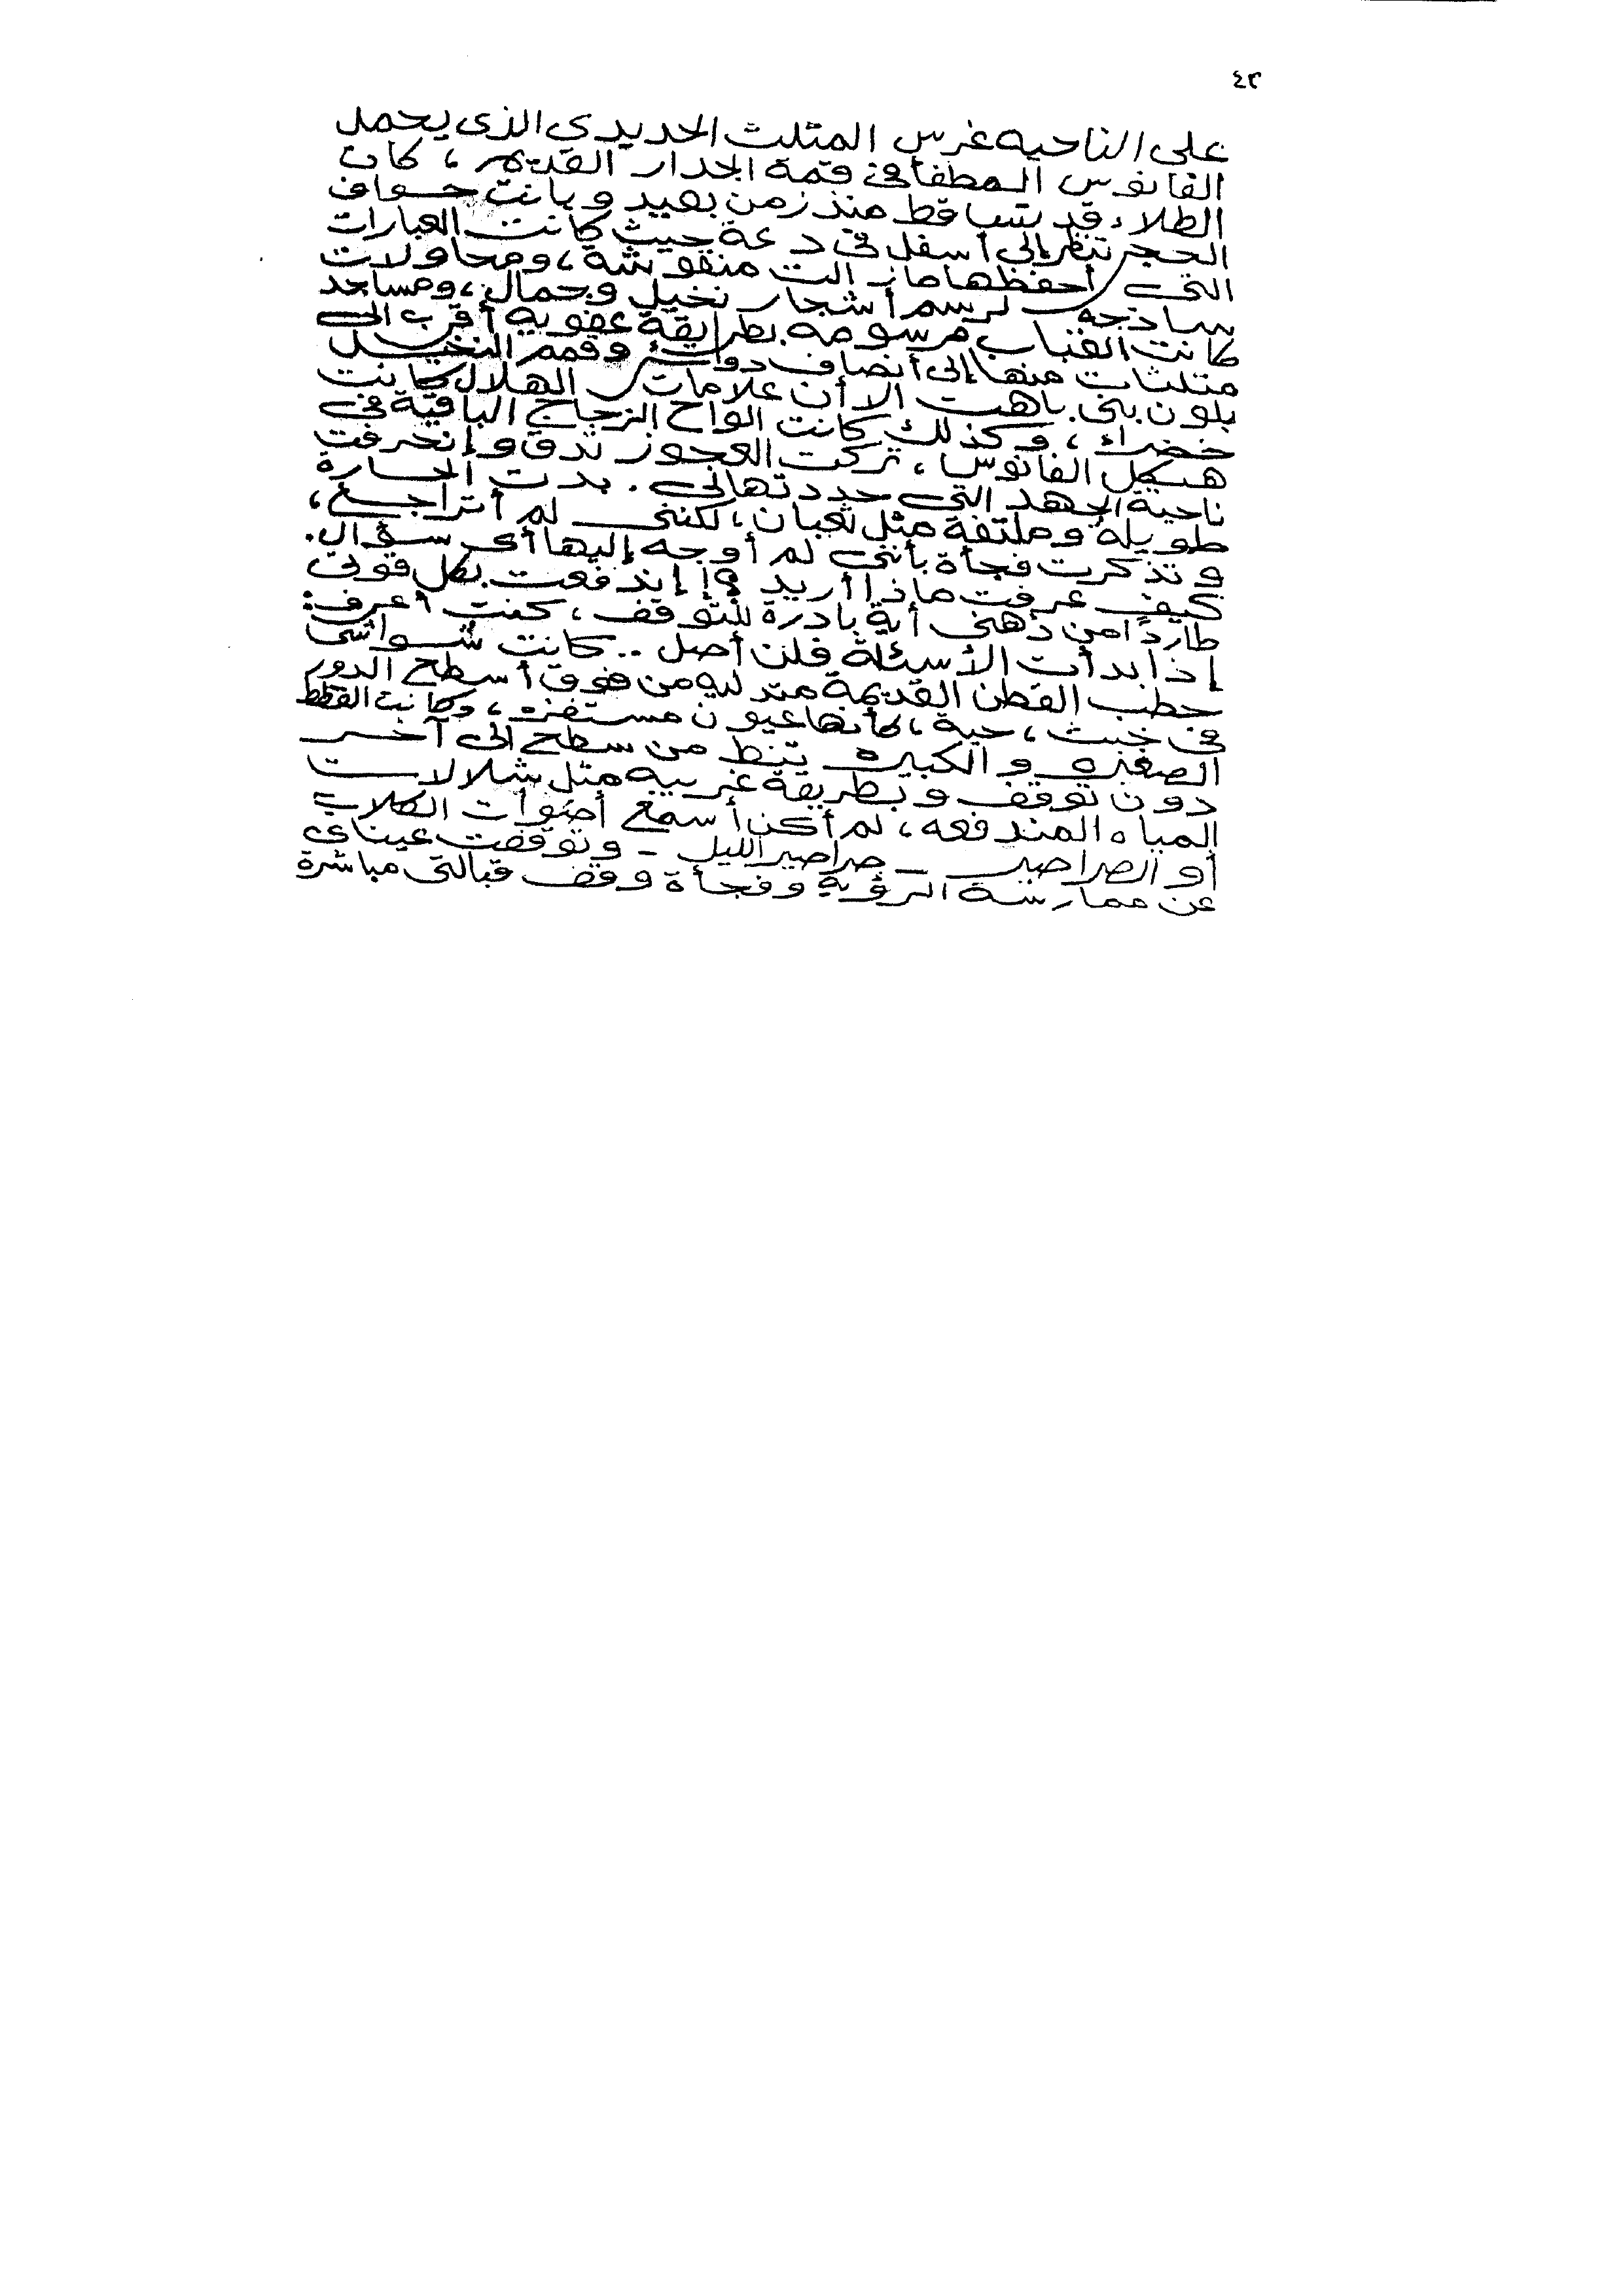 ٤٢
على الناحيه غرس المثلث الحديدي الذى يحمل
الفانوس المطفأ فى قمة الجدار القديم ، كان
الطلاء قد تساقط منذ زمن بعيد وبانت حواف
الحجر تنظر إلى أسفل فى دعة حيث كانت العبارات
التى أحفظها مازالت منقوشة ، ومحاولات
ساذجة لرسم أشجار نخيل وجمال ، ومساجد
كانت القباب مرسومه بطريقة عفويه أقرب الى
مثلثات منها إلى أنصاف دوائر وقمم النخيل
بلون بنى باهت الا أن علامات الهلال كانت
خضراء ، وكذلك كانت الواح الزجاج الباقية فى
هيكل الفانوس ، تركت العجوز تدق وإنحرفت
ناحية الجهد التى حددتها لى . بدت الحارة
طويلة وملتفة مثل ثعبان ، لكننى لم أتراجع ،
وتذكرت فجأة بأننى لم أوجه إليها أى سؤال .
كيف عرفت ماذا أريد ؟! إندفعت بكل قوتى
طارداً من ذهنى أية بادرة للتوقف ، كنت أعرف :
إذا بدأت الأسئلة فلن أصل .. كانت شواشى
حطب القطن القديمة متدليه من فوق أسطح الدور
فى خبث ، حية ، كأنها عيون مستفزه ، وكانت القطط
الصغيره و الكبيره تنط من سطح الى آخر
دون توقف وبطريقة غريبه مثل شلالات
المياه المندفعه ، لم أكن أسمع أصوات الكلاب
أو الصراصير - صراصير الليل - وتوقفت عيناى
عن ممارسة الرؤية وفجأة وقف قبالتى مباشرة